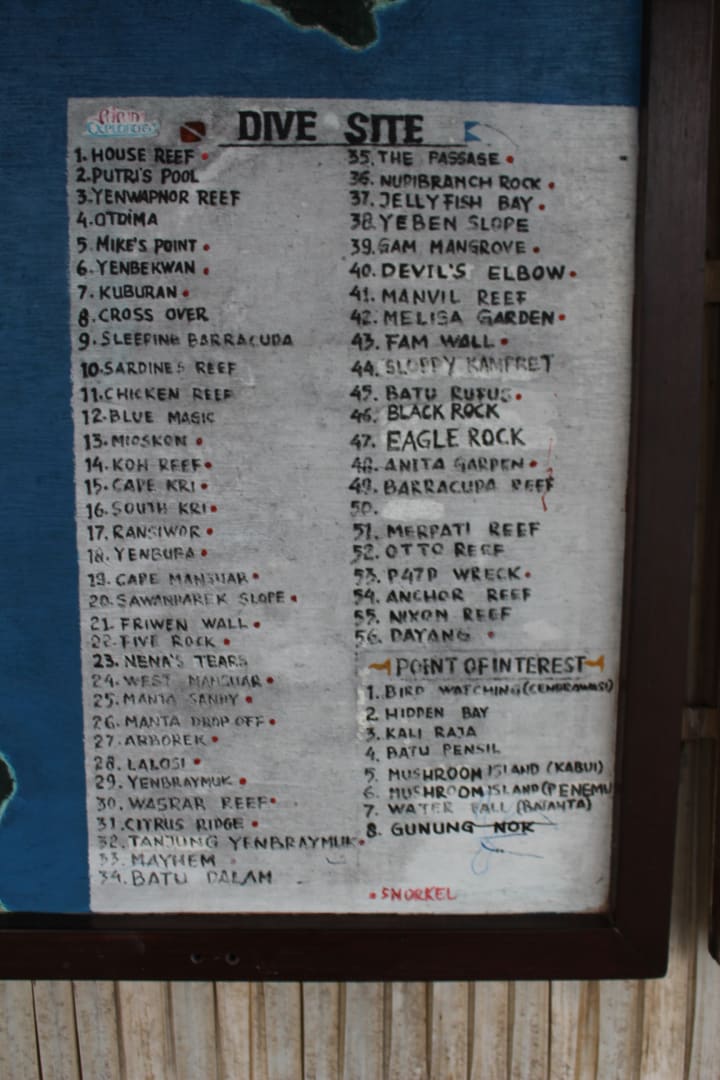 DIVE SITE
1. HOUSE REEF
2. PUTRI'S POOL
3. YENWAPNOR REEF
4. OTDIMA
5. MIKE'S POINT
6. YENBEKWAN
7. KUBURAN
8. CROSS OVER
9. SLEEPING BARRACUDA
10. SARDINES REEF
11. CHICKEN REEF
12. BLUE MAGIC
13. MIOSKON
14. KOH REEF
15. CAPE KRI
16. SOUTH KRI
17. RANSIWOR
18. YENBUBA
19. CAPE MANSUAR
20. SAWANDAREK SLOPE
21. FRIWEN WALL
22. FIVE ROCK
23. NENA'S TEARS
24. WEST MANSUAR
25. MANTA SANDY
26. MANTA DROP OFF
27. ARBOREK
28. LALOSI
29. YENBRAYMUK
30. WASRAR REEF
31. CITRUS RIDGE
32. TANJUNG YENBRAYMUK
33. MAYHEM
34. BATU DALAM
35. THE PASSAGE
36. NUDIBRANCH ROCK
37. JELLYFISH BAY
38. YEBEN SLOPE
39. GAM MANGROVE
40. DEVIL'S ELBOW
41. MANVIL REEF
42. MELISA GARDEN
43. FAM WALL
44. SLOPPY KAMPRET
45. BATU RUFUS
46. BLACK ROCK
47. EAGLE ROCK
48. ANITA GARDEN
49. BARRACUDA REEF
50.
51. MERPATI REEF
52. OTTO REEF
53. P47D WRECK
54. ANCHOR REEF
55. NIXON REEF
56. DAYANG
POINT OF INTEREST
1. BIRD WATCHING (CENDRAWASI)
2 HIDDEN BAY
3. KALI RAJA
4. BATU PENSIL
5. MUSHROOM ISLAND (KABUI)
6. MUSHROOM ISLAND (PENEMU
7. WATER FALL
8. GUNUNG NOK
SNORKEL